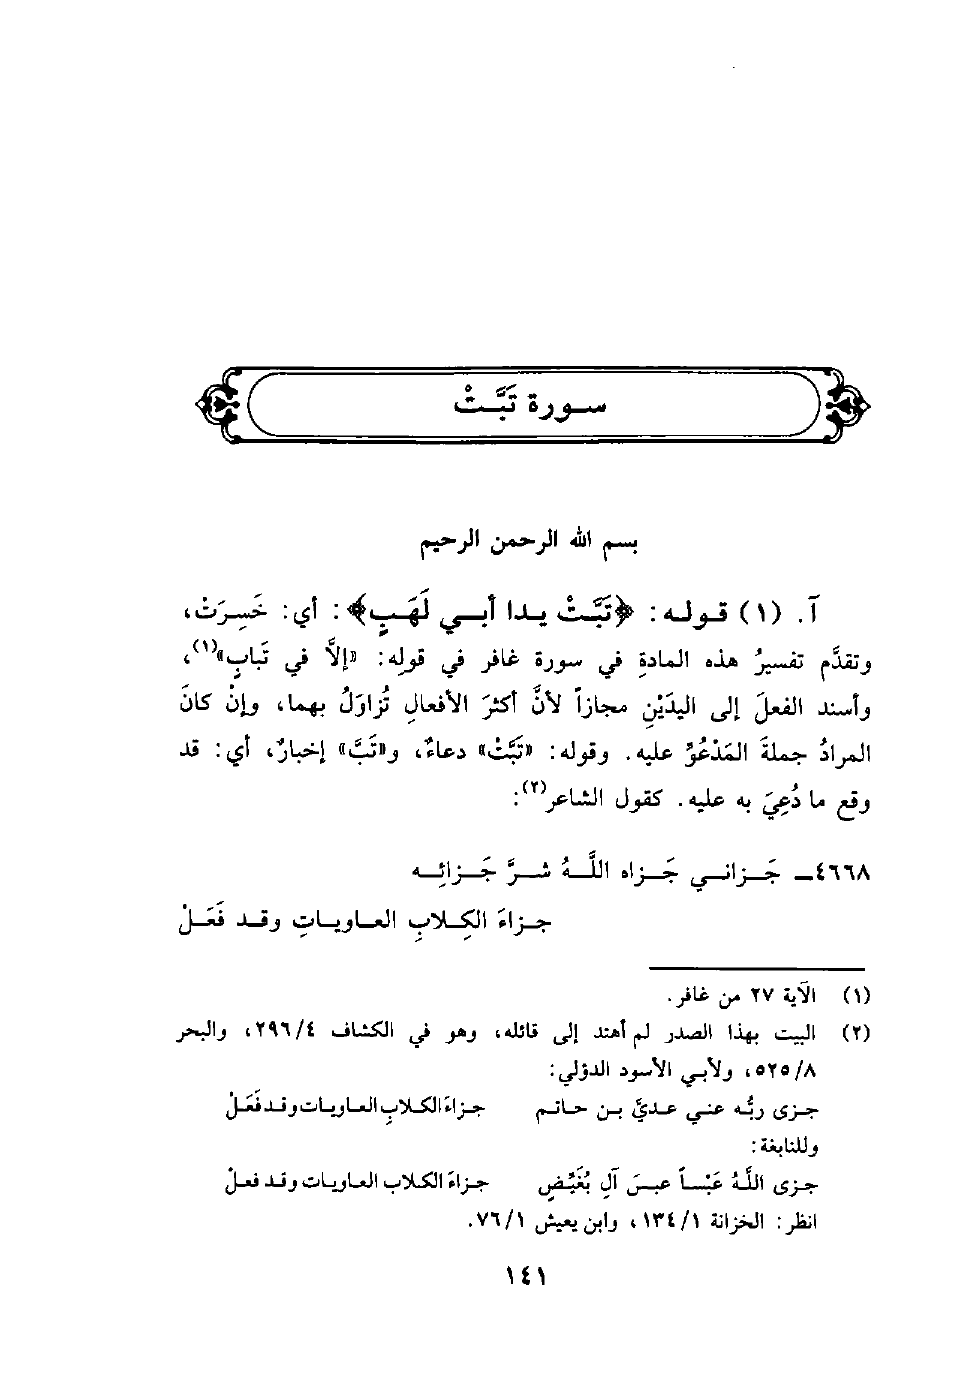 سورة تَبَّتْ
بسم الله الرحمن الرحيم
آ. (١) قوله: ﴿تَبَّتْ يدا أبي لَهَبٍ﴾: أي: خَسِرَتْ،
وتقدَّم تفسيرُ هذه المادةِ في سورة غافر في قولِه: «إلاَّ في تَبابٍ»(١)،
وأسند الفعلَ إلى اليدَيْنِ مجازاً لأنَّ أكثرَ الأفعالِ تُزاوَلُ بهما، وإنْ كانَ
المرادُ جملةَ المَدْعُوِّ عليه. وقوله: «تَبَّتْ» دعاءٌ، و«تَبَّ» إخبارٌ، أي: قد
وقع ما دُعِيَ به عليه. كقول الشاعر(٢):
٤٦٦٨ـ جَزاني جَزاه اللَّهُ شرَّ جَزائِه
جزاءَ الكِلابِ العاوياتِ وقد فَعَلْ
(١) الآية ٢٧ من غافر.
(٢) البيت بهذا الصدر لم أهتد إلى قائله، وهو في الكشاف ٢٩٦/٤، والبحر
٥٢٥/٨، ولأبي الأسود الدؤلي:
جزى ربُّه عني عديَّ بن حاتم جزاءَ الكلابِ العاويات وقد فَعَلْ
وللنابغة:
جزى اللَّهُ عَبْساً عبسَ آلِ بُغَيْضٍ جزاءَ الكلاب العاويات وقد فعلْ
انظر: الخزانة ١٣٤/١، وابن يعيش ٧٦/١.
١٤١